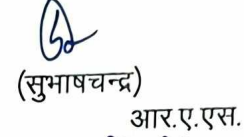 (सुभाषचन्द्र)
आर.ए.एस.